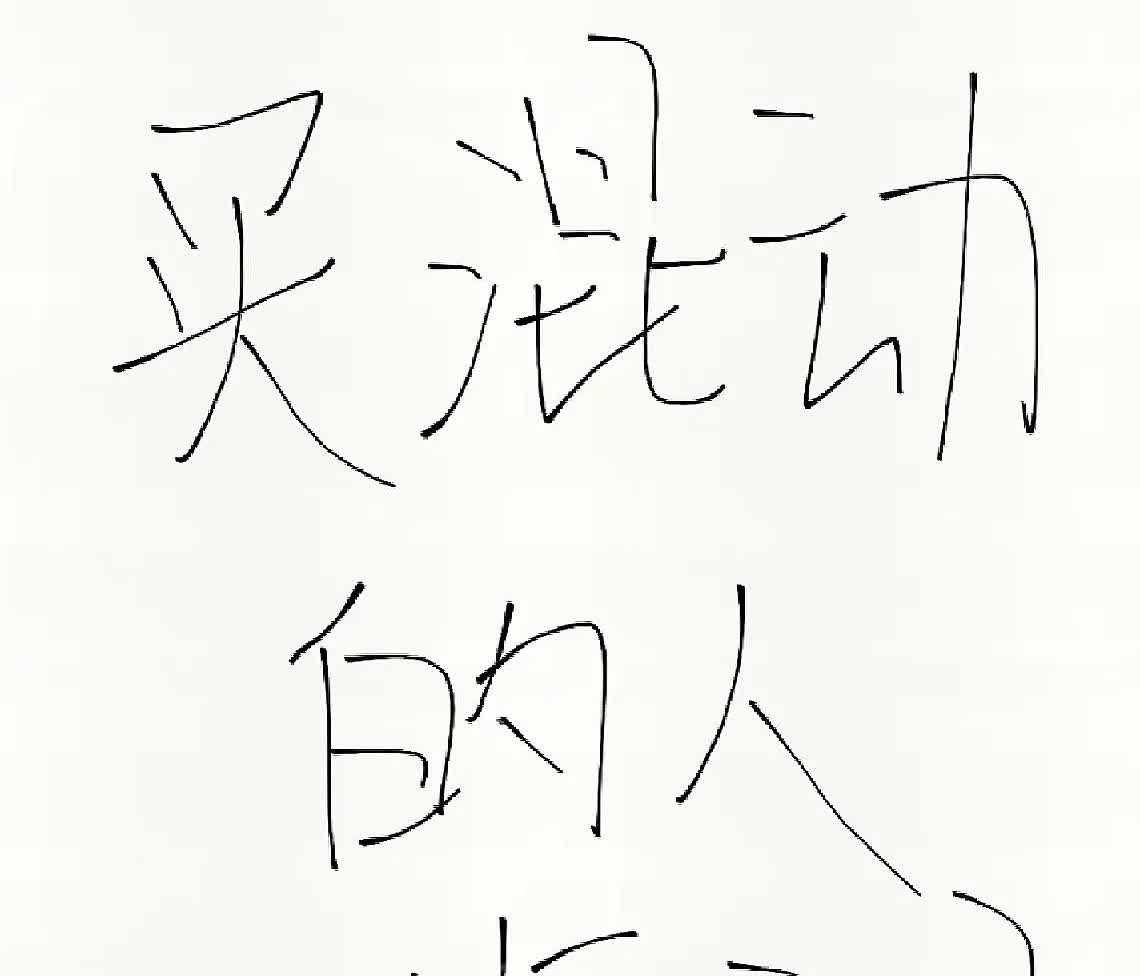 买混动
的人